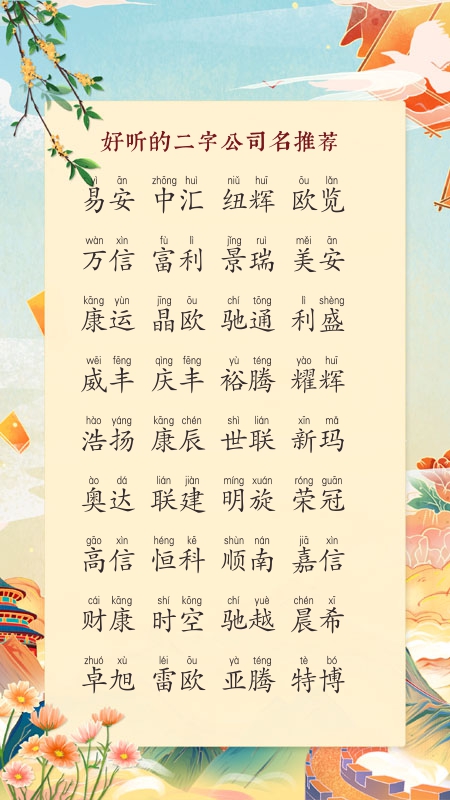 好听的二字公司名推荐
yì ān zhōng huì niǔ huī ōu lǎn
易安 中汇 纽辉 欧览
wàn xìn fù lì jǐng ruì měi ān
万信 富利 景瑞 美安
kāng yùn jīng ōu chí tōng lì shèng
康运 晶欧 驰通 利盛
wēi fēng qìng fēng yù téng yào huī
威丰 庆丰 裕腾 耀辉
hào yáng kāng chén shì lián xīn mǎ
浩扬 康辰 世联 新玛
ào dá lián jiàn míng xuán róng guān
奥达 联建 明旋 荣冠
gāo xìn héng kē shùn nán jiā xìn
高信 恒科 顺南 嘉信
cái kāng shí kōng chí yuè chén xī
财康 时空 驰越 晨希
zhuó xù léi ōu yà téng tè bó
卓旭 雷欧 亚腾 特博